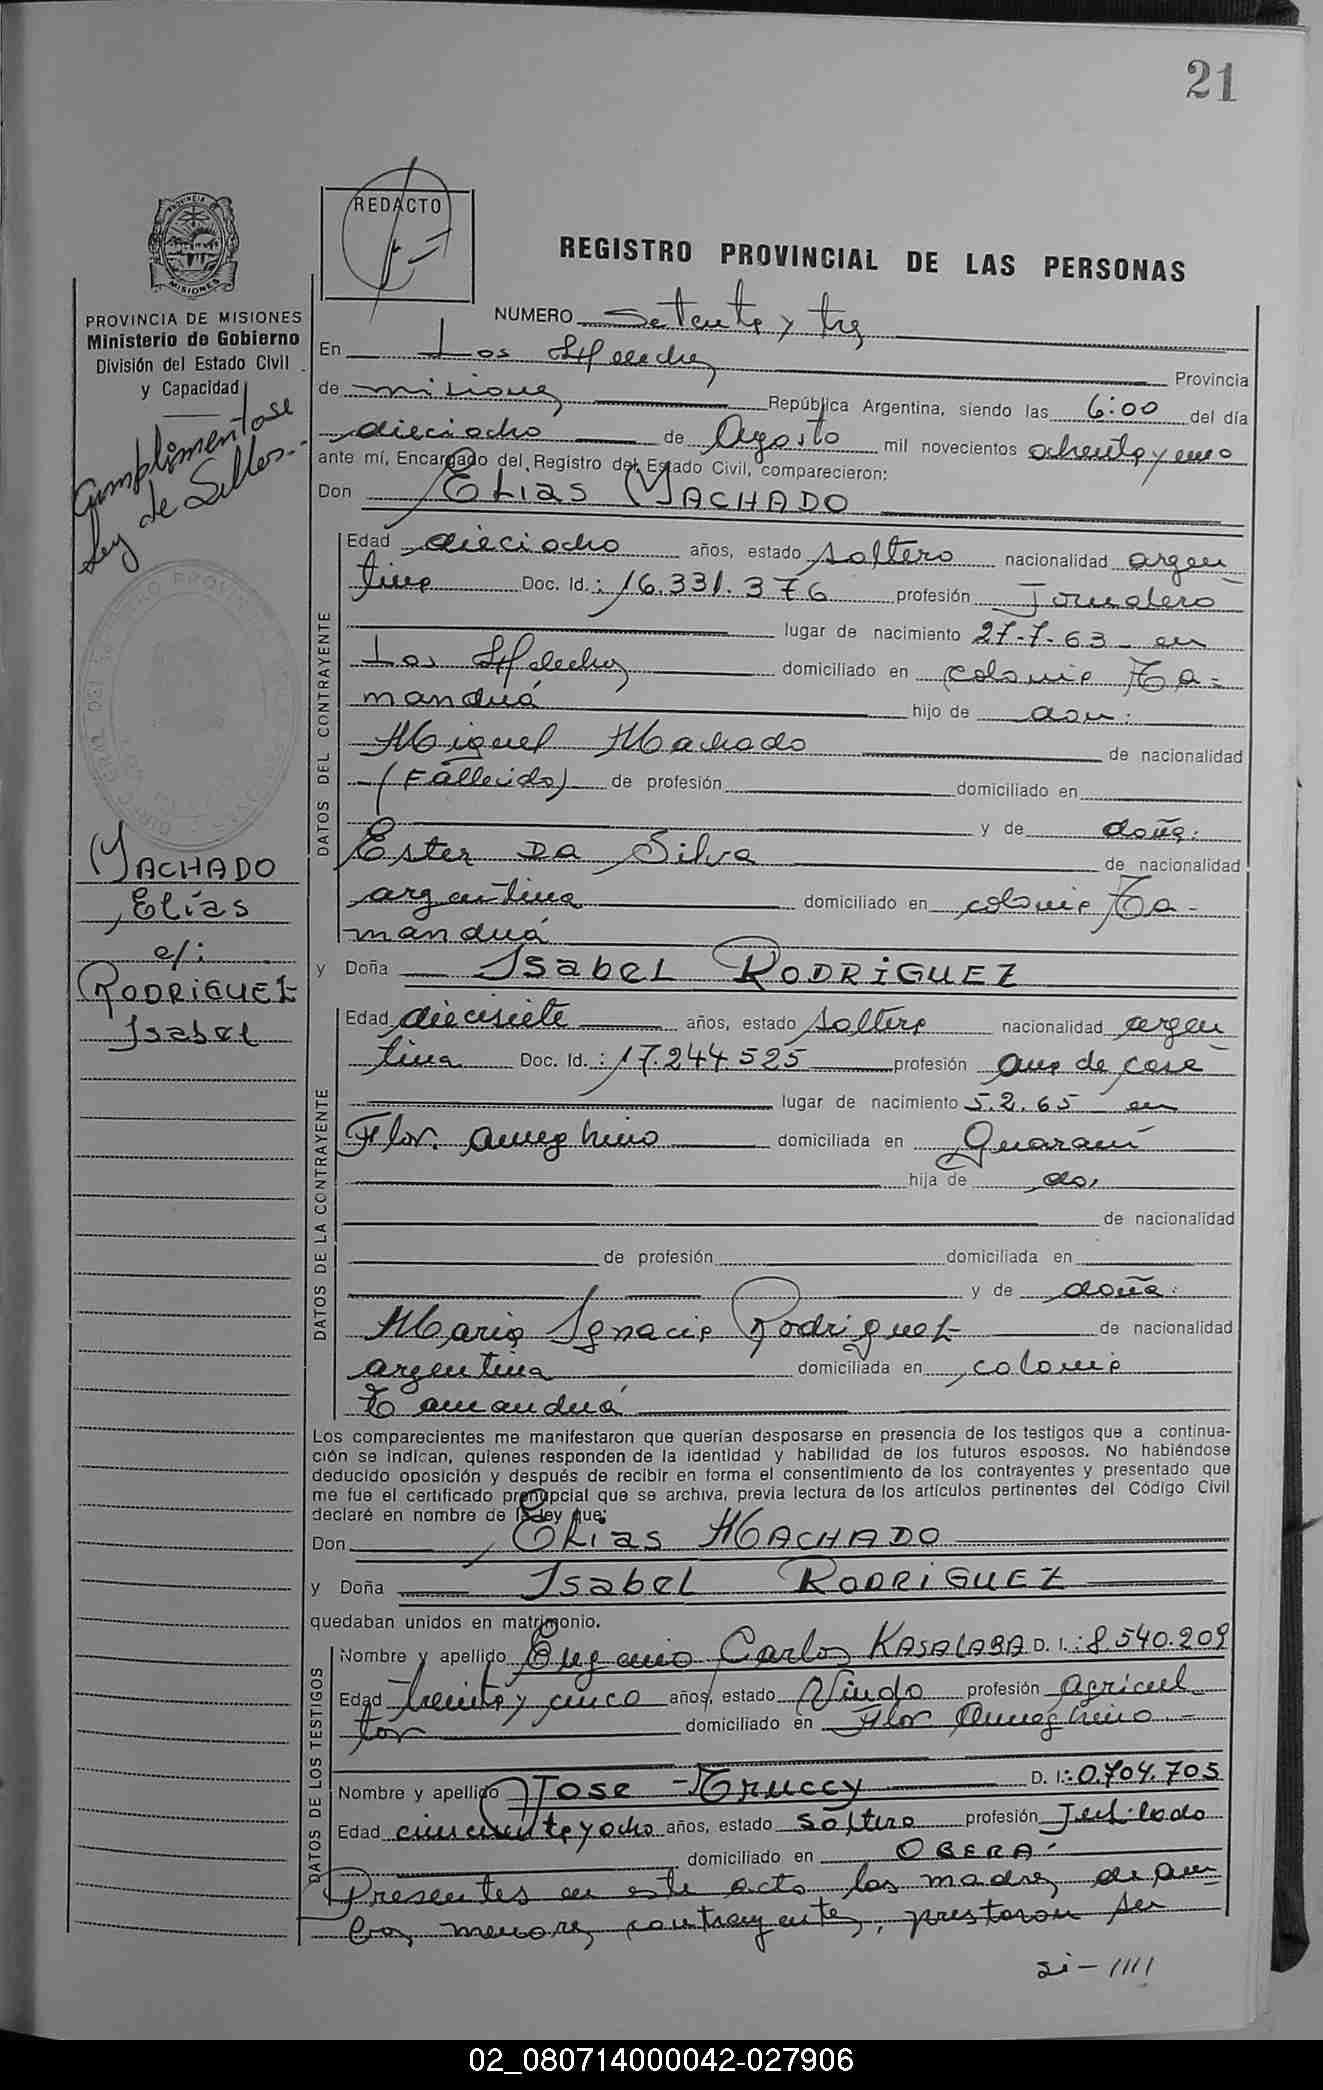 21
PROVINCIA DE
MISIONES
REDACTO
REGISTRO PROVINCIAL DE LAS PERSONAS
PROVINCIA DE MISIONES
Ministerio de Gobierno
División del Estado Civil
y Capacidad
Cumplimentose
ley de Sellos.-
MACHADO
Elías
c/:
RODRIGUEZ
Isabel
NUMERO Setenta y tres
En Los Helechos Provincia
de misiones República Argentina, siendo las 6:00 del día
dieciocho de Agosto mil novecientos ochenta y uno
ante mí, Encargado del Registro del Estado Civil, comparecieron:
Don ELIAS MACHADO
DATOS DEL CONTRAYENTE
Edad dieciocho años, estado soltero nacionalidad argen
tina Doc. Id.: 16.331.376 profesión Jornalero
lugar de nacimiento 27-7-63 en
Los Helechos domiciliado en colonia Ta-
manduá hijo de don:
Miguel Machado de nacionalidad
(Fallecido) de profesión domiciliado en
y de doña:
Ester DA Silva de nacionalidad
argentina domiciliado en colonia Ta-
manduá
y Doña ISABEL RODRIGUEZ
DATOS DE LA CONTRAYENTE
Edad diecisiete años, estado soltera nacionalidad argen
tina Doc. Id.: 17.244.525 profesión ama de casa
lugar de nacimiento 5.2.65 en
Flor. Ameghino domiciliada en Guaraní
hija de do,
de nacionalidad
de profesión domiciliada en
y de doña:
Maria Ignacia Rodriguez de nacionalidad
argentina domiciliada en colonia
Tamanduá
Los comparecientes me manifestaron que querían desposarse en presencia de los testigos que a continua-
ción se indican, quienes responden de la identidad y habilidad de los futuros esposos. No habiéndose
deducido oposición y después de recibir en forma el consentimiento de los contrayentes y presentado que
me fue el certificado prenupcial que se archiva, previa lectura de los artículos pertinentes del Código Civil
declaré en nombre de la ley que:
Don ELIAS MACHADO
y Doña ISABEL RODRIGUEZ
quedaban unidos en matrimonio.
DATOS DE LOS TESTIGOS
Nombre y apellido Eugenio Carlos KASALABA D. I.: 8.540.209
Edad treinta y cinco años, estado Viudo profesión agricul
tor domiciliado en Flor Ameghino -
Nombre y apellido JOSE TRUCCY D. I.: 0.704.705
Edad cincuenta y ocho años, estado soltero profesión Jubilado
domiciliado en OBERA
Presentes en este acto las madres de am
bos menores contrayentes, prestaron su
si-////
02_080714000042-027906